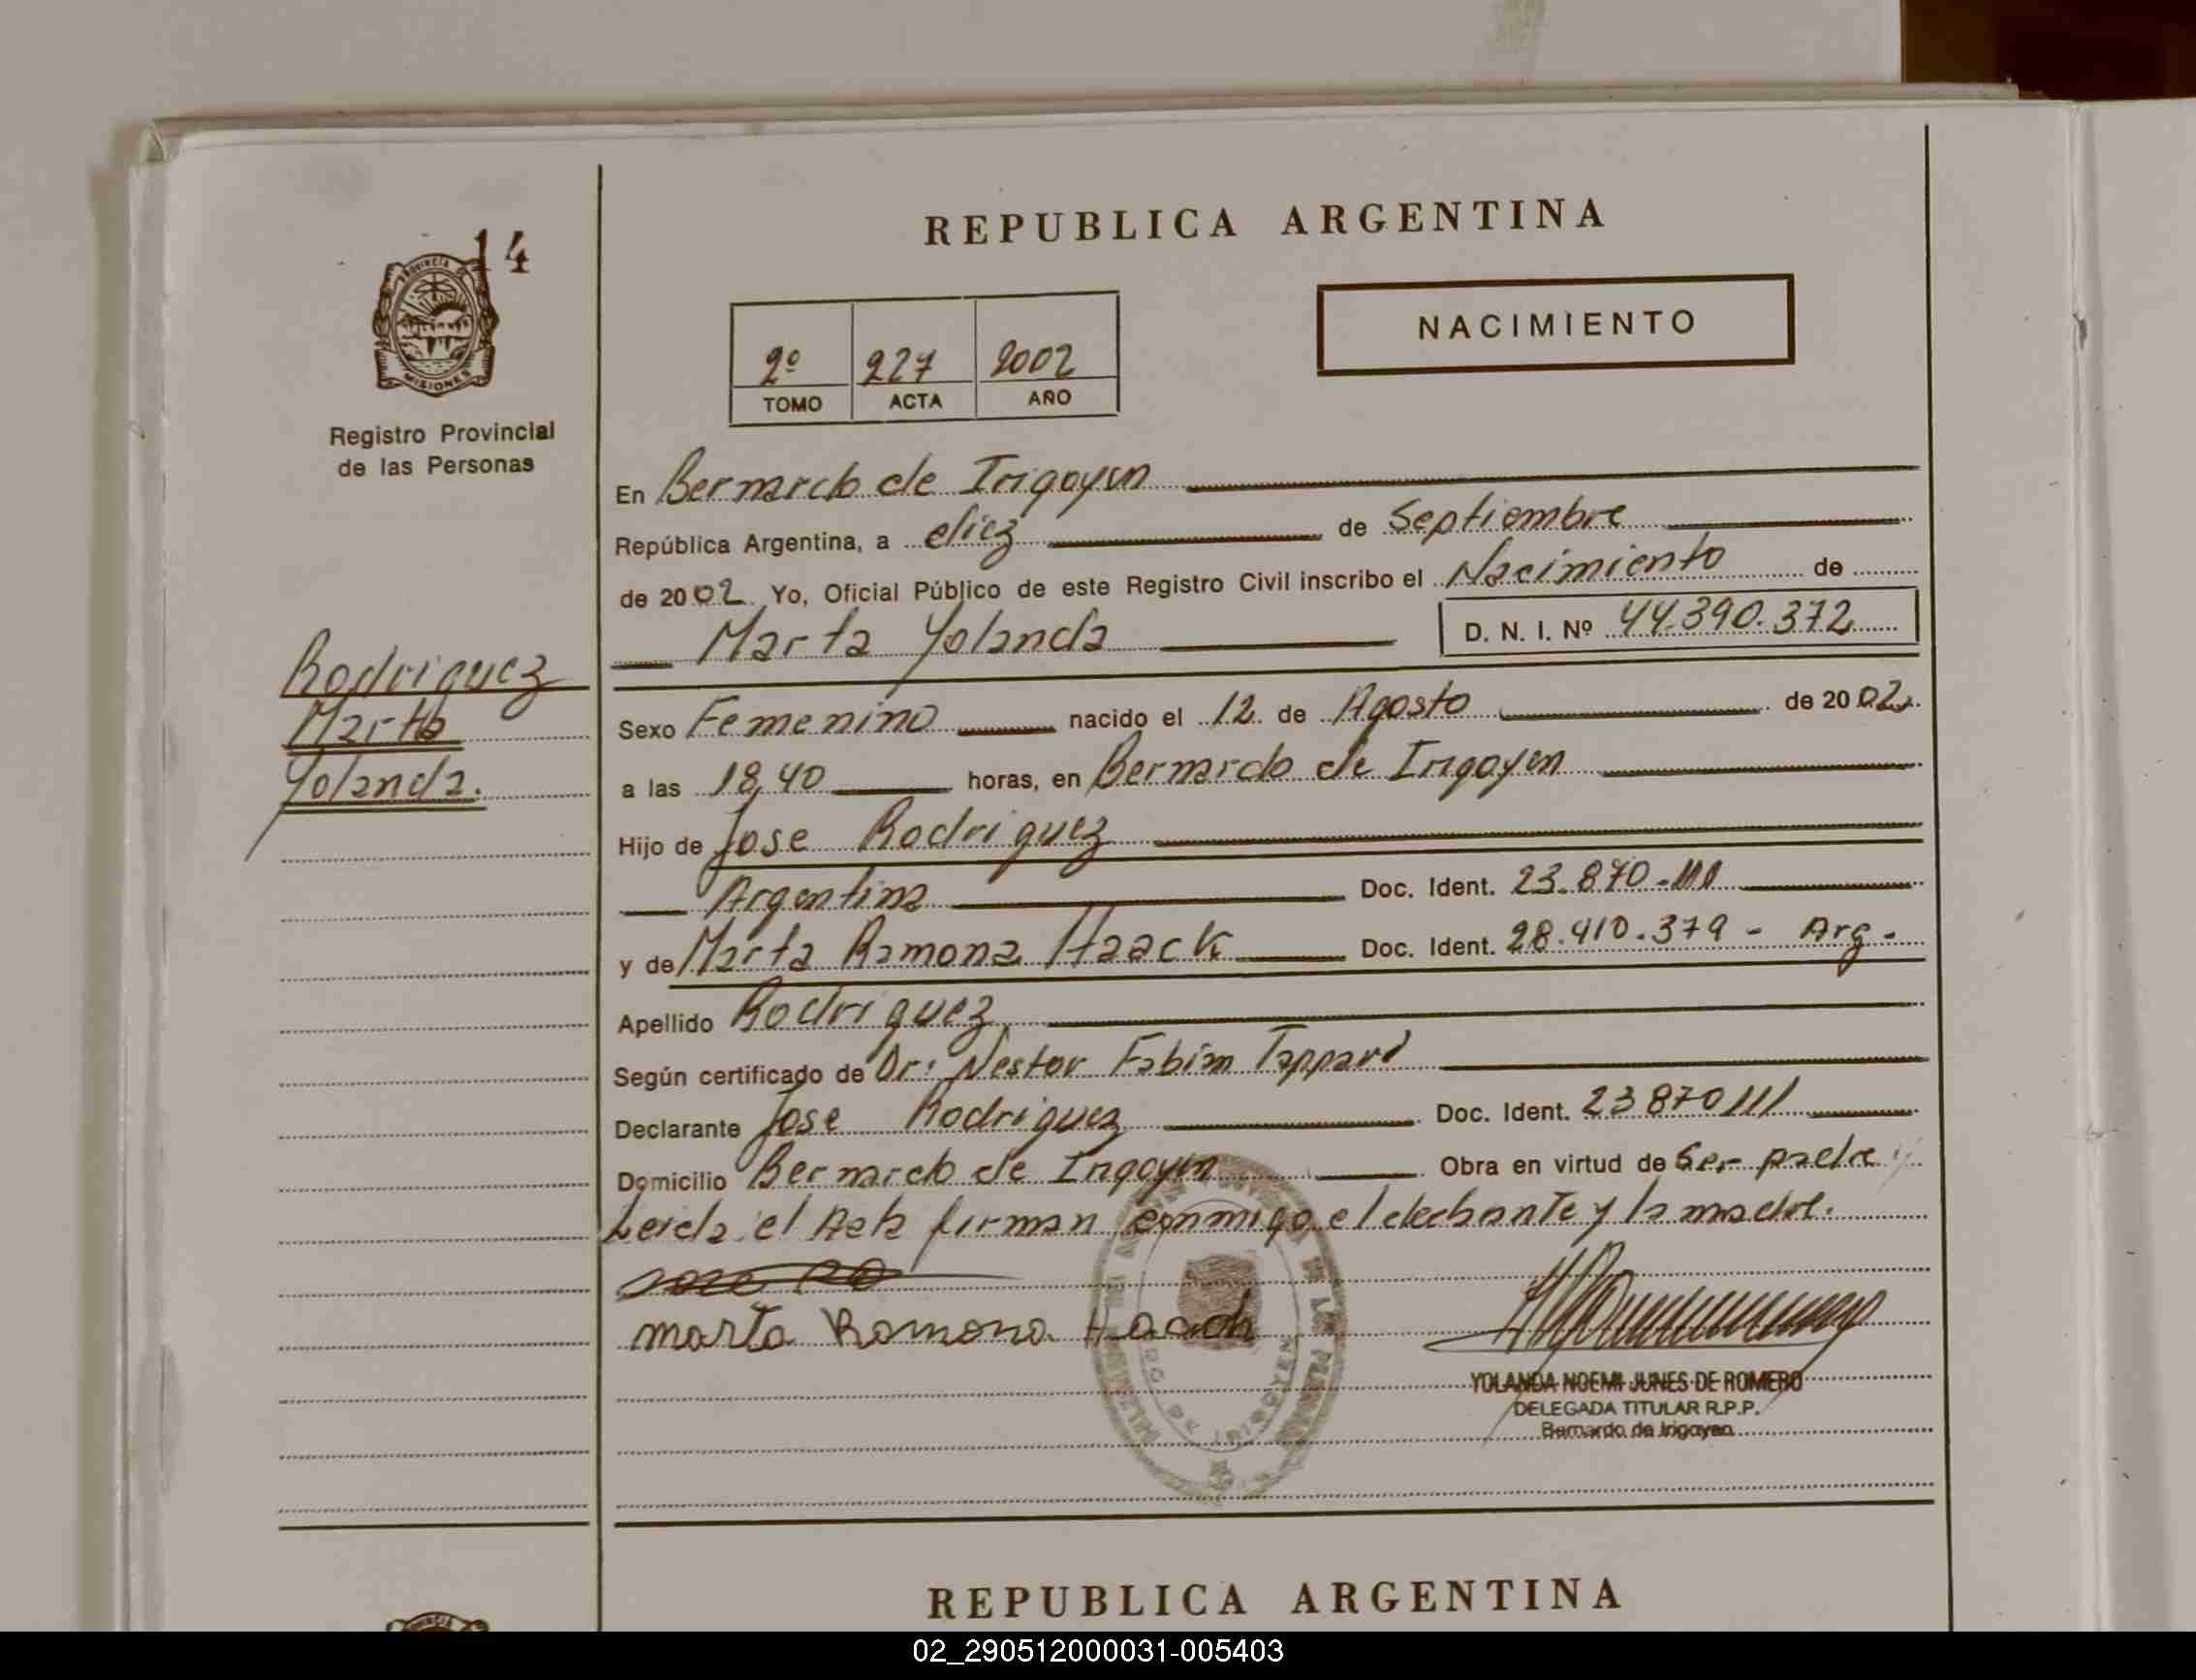 14
PROVINCIA DE
MISIONES
Registro Provincial
de las Personas
Rodriguez
Marta
Yolanda.
REPUBLICA ARGENTINA
NACIMIENTO
2º 227 2002
TOMO ACTA AÑO
En Bernardo de Irigoyen
República Argentina, a diez de Septiembre
de 2002 Yo, Oficial Público de este Registro Civil inscribo el Nacimiento de
Marta Yolanda D. N. I. Nº 44.390.372
Sexo Femenino nacido el 12 de Agosto de 2002
a las 18,40 horas, en Bernardo de Irigoyen
Hijo de Jose Rodriguez
Argentina Doc. Ident. 23.870.111
y de Marta Ramona Haack Doc. Ident. 28.410.379 - Arg.
Apellido Rodriguez
Según certificado de Dr: Nestor Fabian Tappari
Declarante Jose Rodriguez Doc. Ident. 23870111
Domicilio Bernardo de Irigoyen Obra en virtud de Ser padre y
Leida el Acta firman conmigo el declarante y la madre.
marta Ramona Haach
YOLANDA NOEMI JUNES DE ROMERO
DELEGADA TITULAR R.P.P.
Bernardo de Irigoyen
REPUBLICA ARGENTINA
02_290512000031-005403